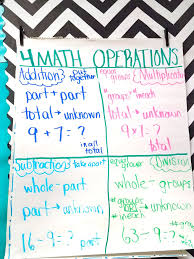 4 MATH OPERATIONS
Addition: put together
part + part
total → unknown
9 + 7 = ?
in all
total
equal groups Multiplication
#groups × #in each
total → unknown
9 × 7 = ?
total
Subtraction: take apart
whole - part
part → unknown
16 - 9 = ?
equal groups Division
whole ÷ groups
unknown
#groups
#in each
63 ÷ 9 = ?